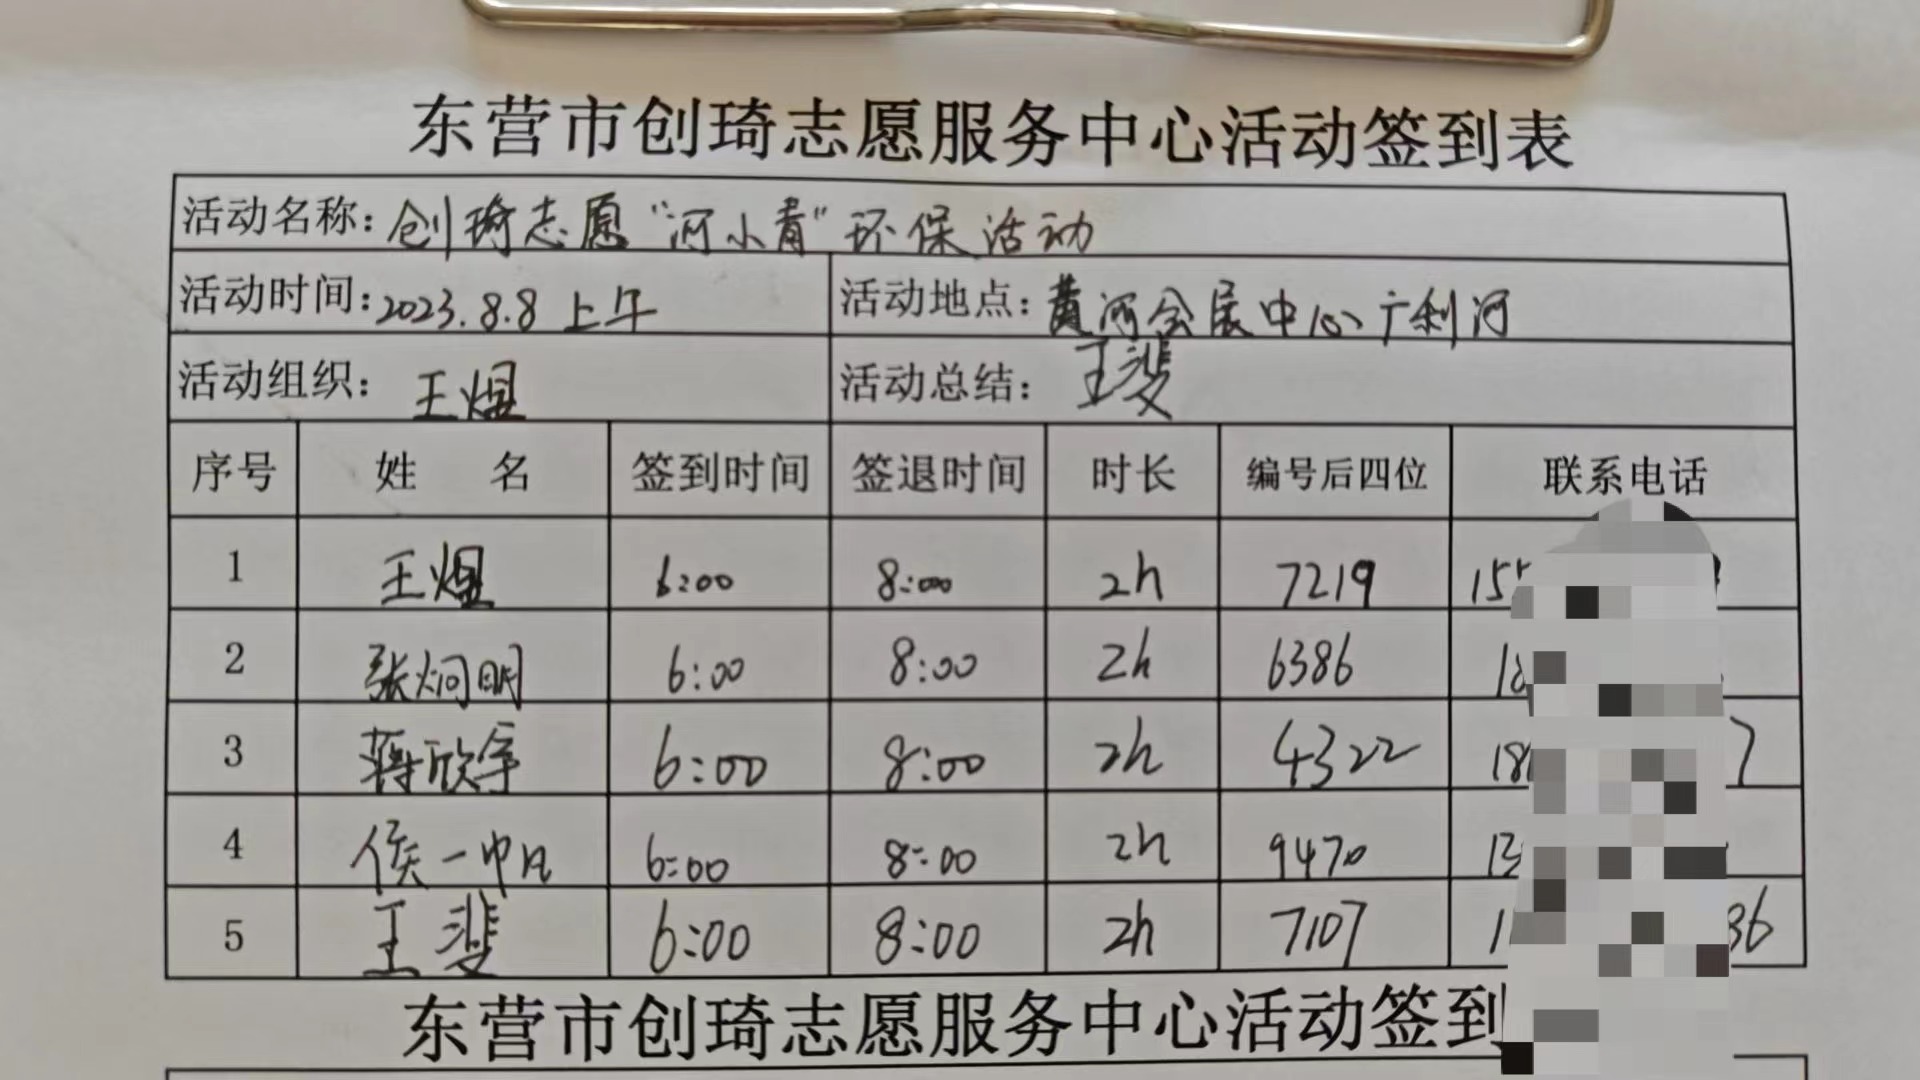 东营市创琦志愿服务中心活动签到表
活动名称：创琦志愿“河小青”环保活动
活动时间：2023.8.8 上午 活动地点：黄河会展中心广利河
活动组织：王煜 活动总结：王斐
序号 姓 名 签到时间 签退时间 时长 编号后四位 联系电话
1 王煜 6:00 8:00 2h 7219 15
2 张炯明 6:00 8:00 2h 6386 18
3 蒋欣宇 6:00 8:00 2h 4322 18 7
4 侯一帆 6:00 8:00 2h 9470 13
5 王斐 6:00 8:00 2h 7107 1 36
东营市创琦志愿服务中心活动签到